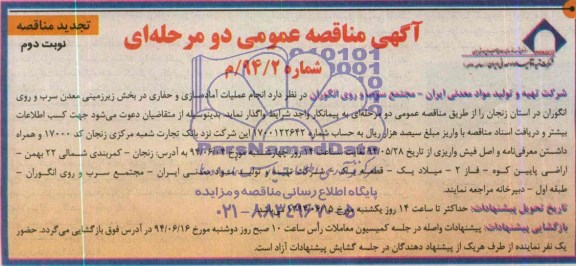 تجدید مناقصه
نوبت دوم
آگهی مناقصه عمومی دو مرحله‌ای
شماره ۹۴/۲/م
شرکت تهیه و تولید مواد معدنی ایران - مجتمع سرب و روی انگوران در نظر دارد انجام عملیات آماده‌سازی و حفاری در بخش زیرزمینی معدن سرب و روی
انگوران در استان زنجان را از طریق مناقصه عمومی دو مرحله‌ای به پیمانکار واجد شرایط واگذار نماید. بدینوسیله از متقاضیان دعوت می‌شود جهت کسب اطلاعات
بیشتر و دریافت اسناد مناقصه با واریز مبلغ سیصد هزار ریال به حساب شماره ۱۷۰۰۱۲۲۶۴۲ این شرکت نزد بانک تجارت شعبه مرکزی زنجان کد ۱۷۰۰۰ و همراه
داشتن معرفی‌نامه و اصل فیش واریزی از تاریخ ۹۴/۰۵/۲۸ تا ساعت ۱۴ روز چهارشنبه مورخ به آدرس: زنجان - کمربندی شمالی ۲۲ بهمن -
اراضی پایین کوه - فاز ۲ - میلاد یک - قطعه یک - شرکت تهیه و تولید مواد معدنی ایران - مجتمع سرب و روی انگوران -
طبقه اول - دبیرخانه مراجعه نمایند.
تاریخ تحویل پیشنهادات: حداکثر تا ساعت ۱۴ روز یکشنبه مورخ
بازگشایی پیشنهادات: پیشنهادات واصله در جلسه کمیسیون معاملات رأس ساعت ۱۰ صبح روز دوشنبه مورخ ۹۴/۰۶/۱۶ در آدرس فوق بازگشایی می‌گردد. حضور
یک نفر نماینده از طرف هریک از پیشنهاد دهندگان در جلسه گشایش پیشنهادات آزاد است.
ParsNamadData
پایگاه اطلاع رسانی مناقصه و مزایده
۰۲۱-۸۸۳۴۹۶۷۰-۵